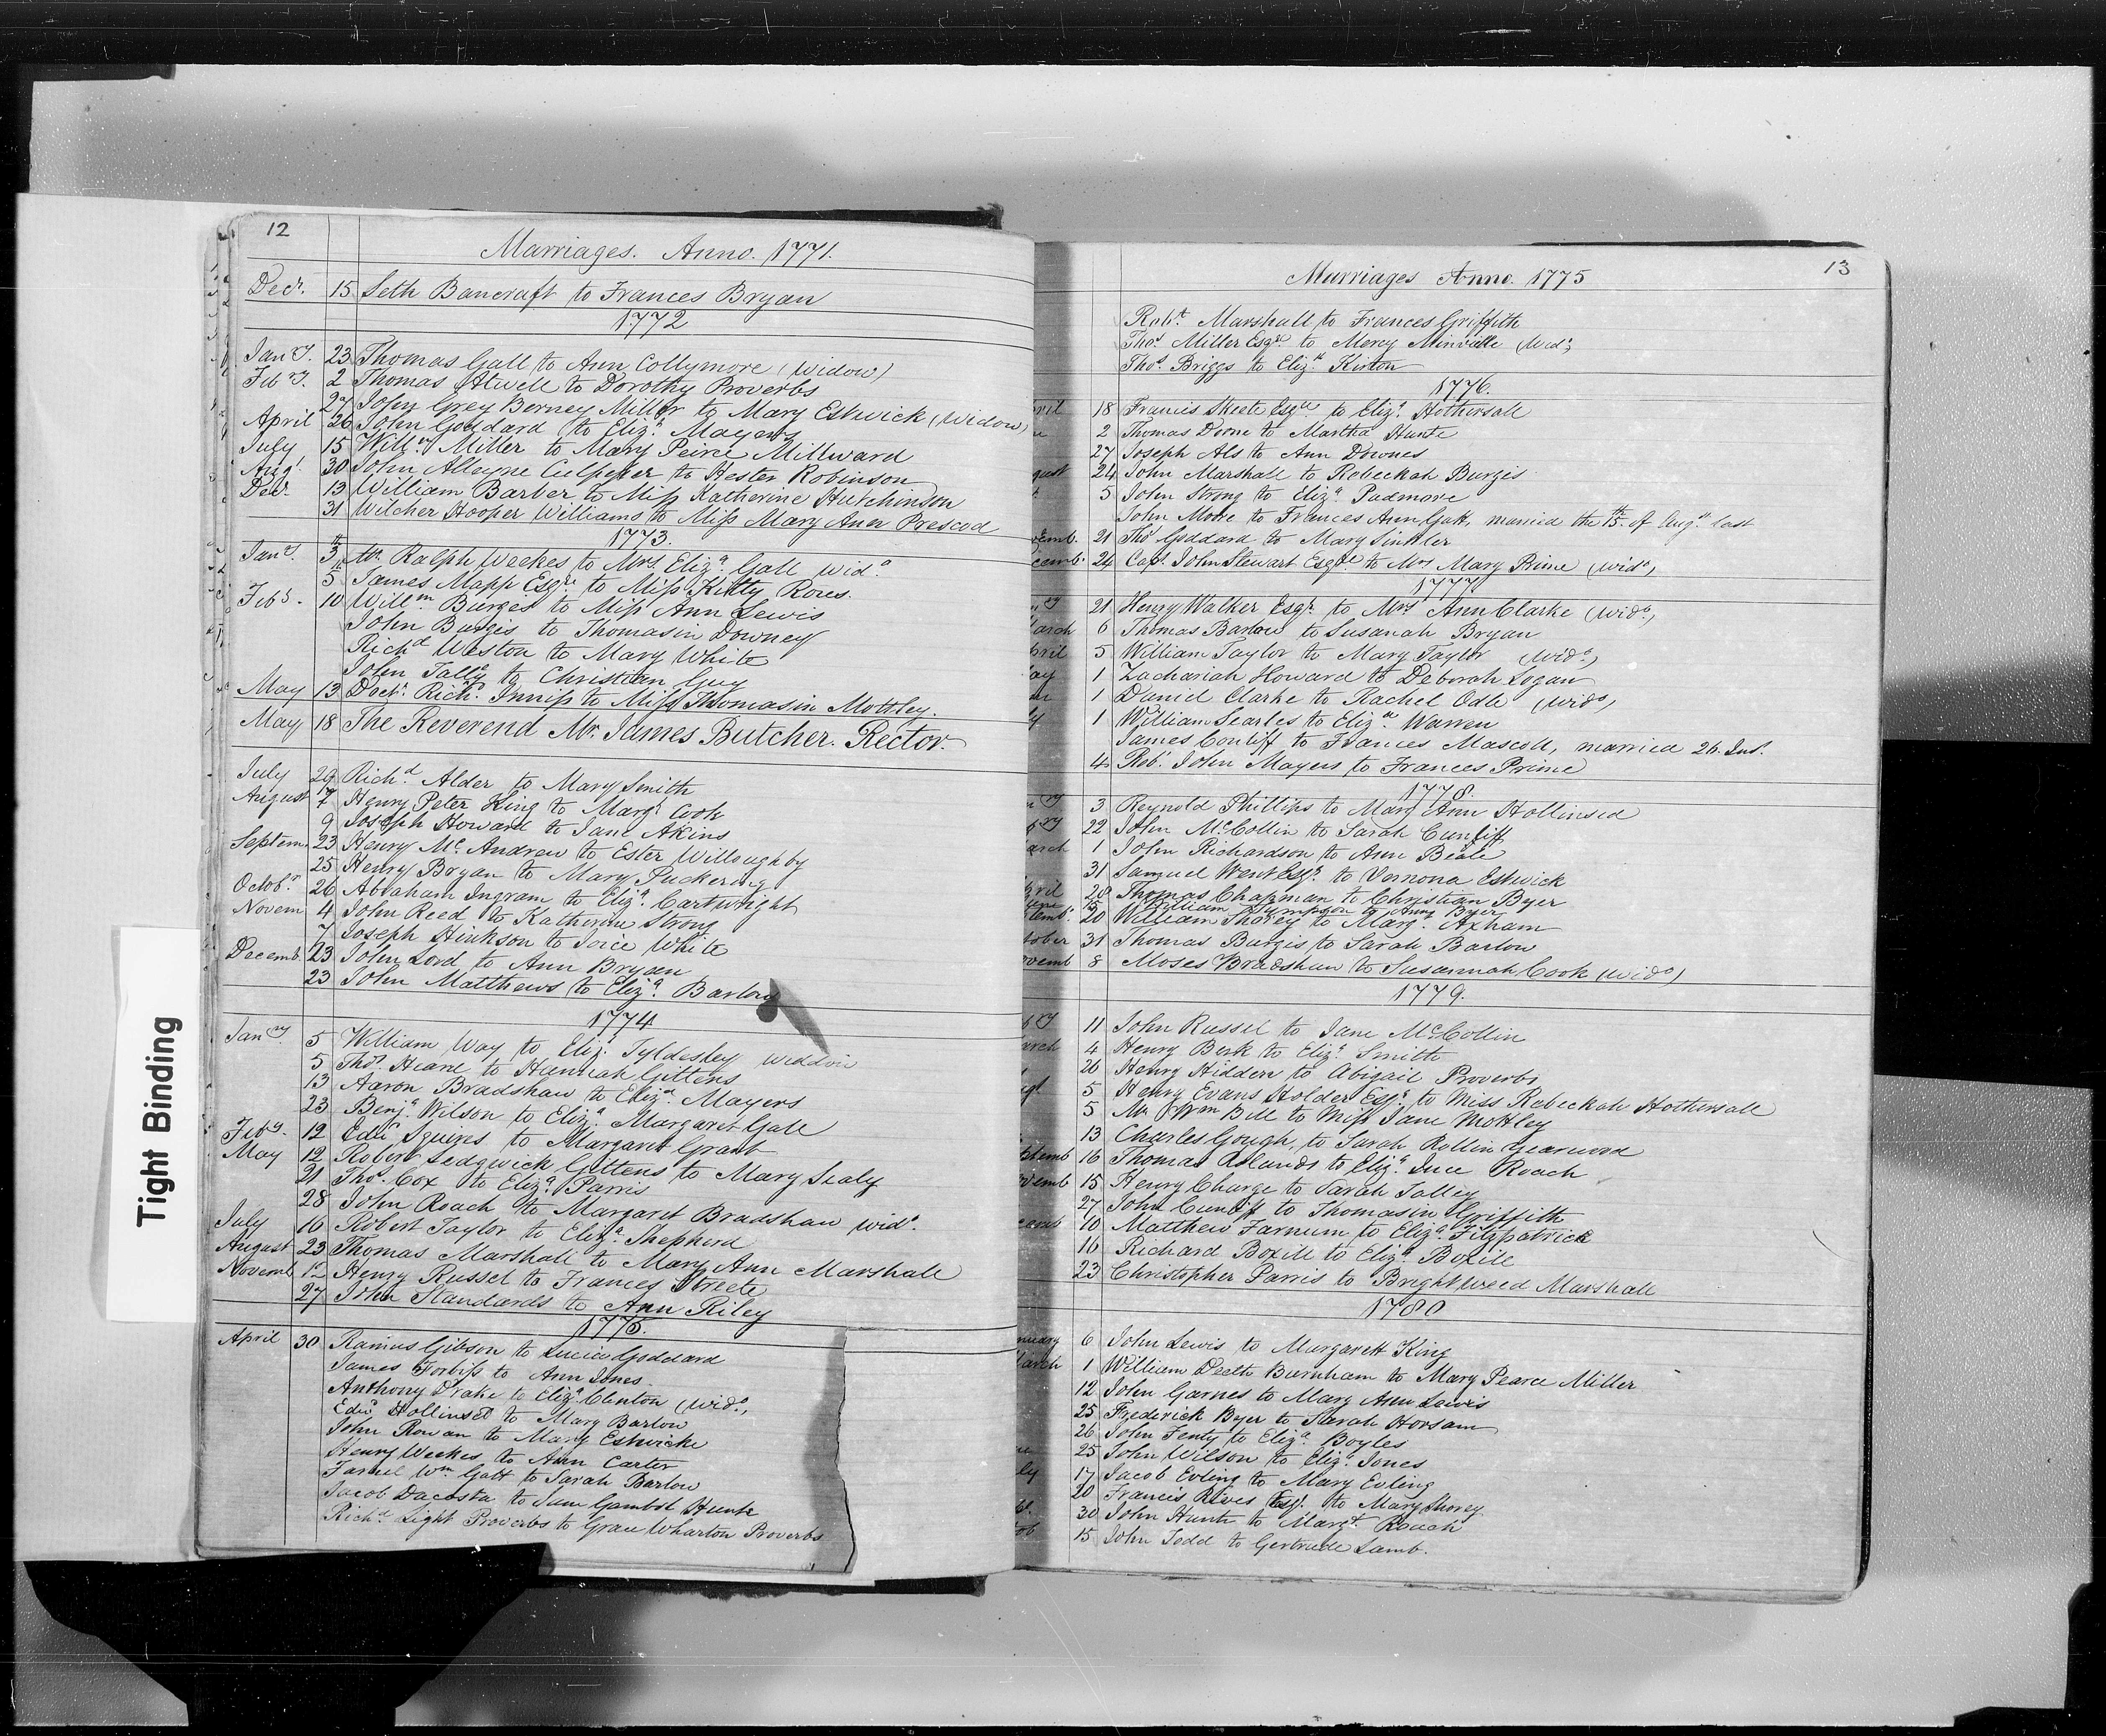 Tight Binding
12
Marriages. Anno. 1771.
Decr. 15 Seth Bancraft to Frances Bryan
1772
Jany. 23 Thomas Gall to Ann Collymore (Widow)
Feb ry. 2 Thomas Atwell to Dorothy Proverbs
27 John Grey Berney Miller to Mary Estwick (Widow)
April 26 John Goddard to Eliza. Mayers
July 15 Willm. Miller to Mary Peirie Millward
Augt. 30 John Alleyne Culpeper to Hester Robinson
Decr. 13 William Barber to Miss Katherine Hutchinson
31 Wilcher Hooper Williams to Miss Mary Ann Prescod
1773.
Jany. 3 Mr. Ralph Weekes to Mrs. Eliza. Gall Wido.
5 James Mapp Esqre. to Miss Kitty Rous.
Feby. 10 Willm. Burgis to Miss Ann Lewis
John Burgis to Thomasin Downey
Richd Weston to Mary White
John Tally to Christian Guy
May 13 Doctr. Richd. Inniss to Miss Thomasin Mottley.
May 18 The Reverend Mr. James Butcher. Rector.
July 29 Richd Alder to Mary Smith
August 7 Henry Peter King to Margt. Cook
9 Joseph Howard to Jane Akins
Septem. 23 Henry Mc. Andrew to Ester Willoughby
25 Henry Bryan to Mary Puckering
Octobr. 26 Abraham Ingram to Eliza. Cartwright
Novem 4 John Reed to Katherine Strong
7 Joseph Hinkson to Joice White
Decemb. 23 John Lord to Ann Bryan
23 John Matthews to Eliza. Barlow
1774
Jany. 5 William Way to Eliz. Tyldesley widdow
5 Thos. Heane to Hannah Gittens
13 Aaron Bradshaw to Eliza. Mayers
23 Benja. Wilson to Eliza. Margaret Gall
Feby. 12 Edwd Squires to Margaret Grant
May 12 Robert Sedgwick Gittens to Mary Sealy
21 Thos. Cox to Eliza. Parris
28 John Roach to Margaret Bradshaw wido.
July 10 Robert Taylor to Eliza. Shepherd
August 23 Thomas Marshall to Mary Ann Marshall
Novemb 12 Henry Russel to Frances Streete
27 John Standards to Ann Riley
1775.
April 30 Ramus Gibson to Lucia Goddard
James Forbiss to Ann Jones
Anthony Drake to Eliza. Clenton (Wido.)
Edwd Hollinsed to Mary Barlow
John Rowan to Mary Estwicke
Henry Weekes to Ann Carter
Wm. Gall to Sarah Barlow
Jacob Dacosta to Jane Hunte
Richd. Light Proverbs to Grace Wharton Proverbs
13
Marriages Anno. 1775
Robt. Marshall to Frances Griffith
Thos. Miller Esqre to Mercy Minvielle (Wido.)
Thos. Briggs to Elizth Kirton
1776.
pril 18 Francis Skeete Esqre to Eliza. Hothersall
2 Thomas Doone to Martha Hunte
27 Joseph Als to Ann Downes
gust 24 John Marshall to Rebeckah Burgis
5 John Strong to Eliza. Padmore
John Moore to Frances Ann Gall, married the 15th. of Augt. last
vemb. 21 Thos Goddard to Mary Sinkler
cemb. 24 Capt. John Stewart Esqre to Mrs Mary Prime (wido.)
1777
ry 21 Henry Walker Esqr. to Mrs Ann Clarke (Wido.)
arch 6 Thomas Barlow to Susanah Bryan
pril 5 William Taylor to Mary Taylor (Wido.)
ay 1 Zachariah Howard to Deborah Logan
1 Daniel Clarke to Rachel Odle (Wido)
ly 1 William Searles to Eliza Warren
James Conliff to Frances Mascoll, married 26. Inst.
4 Robt. John Mayers to Frances Prime
1778.
ry 3 Reynold Phillips to Mary Ann Hollinsed
ry 22 John Mc.Collin to Sarah Cunliff
arch 1 John Richardson to Ann Beale
31 Samuel Went Esqr. to Vernona Estwick
pril 20 Thomas Chapman to Christian Byer
une 15 William Sumpson to Ann Byer
temb. 20 William Shorey to Margt. Axham
tober 31 Thomas Burgis to Sarah Barlow
vemb 8 Moses Bradshaw to Susannah Cook (Wido)
1779.
ry 11 John Russel to Jane Mc.Collin
arch 4 Henry Besk to Eliza. Smith
26 Henry Hidden to Abigail Proverbs
ugt. 5 Henry Evans Holder Esqr. to Miss Rebeckah Hothersall
5 Mr. Wm Bell to Miss Jane Mottley
13 Charles Gough, to Sarah Rollin Yearwood
ptemb 16 Thomas Rolands to Eliza. Ince Roach
vemb 15 Henry Charge to Sarah Talley
27 John Cunliff to Thomasin Griffith
cemb 10 Matthew Farnum to Eliza. Fitzpatrick
16 Richard Boxill to Eliza Boxill
23 Christopher Parris to Brightweed Marshall
1780
nuary 6 John Lewis to Margarett King
arch 1 William Death Burnham to Mary Pearce Miller
12 John Garnes to Mary Ann Lewis
25 Frederick Byer to Sarah Horsam
26 John Fenty to Eliza. Boyles
ne 25 John Wilson to Eliza. Jones
ly 17 Jacob Evling to Mary Evling
20 Francis Rives Esqr. to Mary Shorey
30 John Hunte to Margt. Roach
ob 15 John Todd to Gertrude Lamb.